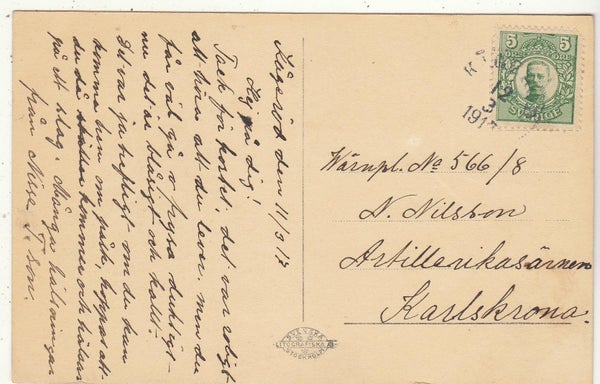 Kågeröd den 11/3 17
Hej på dig!
Tack för kortet, det var roligt
att höra att du lever. men du
får väl gå o frysa duktigt
nu det är blåsigt och kallt.
Det var ja heftigt om du kan
komma hem om påsk, hoppas att
du då kommer och hälsar
på ett slag. Många hälsningar
från
5 ÖRE 5 ÖRE
SVERIGE
12
3
191
Värnpl. No 566/8
N. Nilsson
Artillerikasärnen
Karlskrona.
SVENSKA
LITOGRAFISKA AB
STOCKHOLM